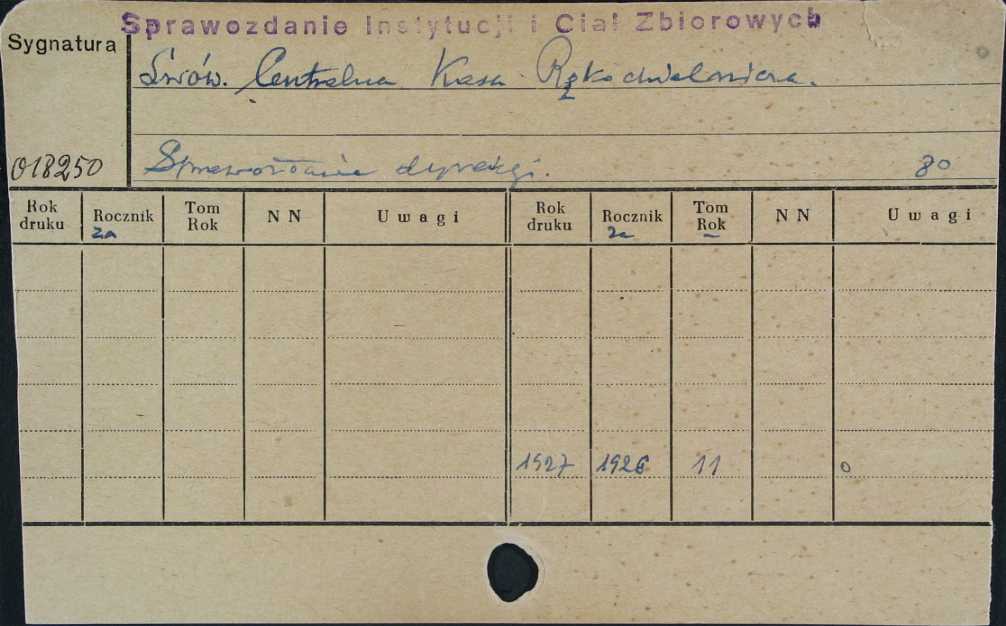 Sprawozdanie Instytucji i Ciał Zbiorowych
Sygnatura
Lwów. Centralna Kasa Rękodzielnicza.
018250 Sprawozdanie dyrekcji. 80
Rok druku Rocznik za Tom Rok N N Uwagi Rok druku Rocznik za Tom Rok N N Uwagi
1927 1926 11 0